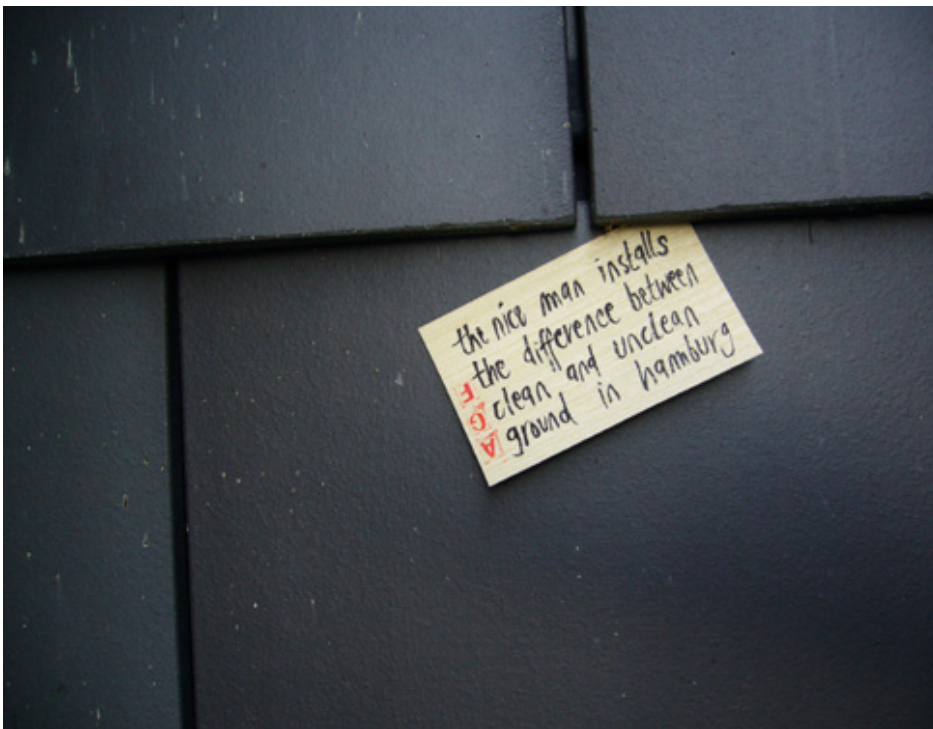 the nice man installs
the difference between
clean and unclean
ground in hamburg
AGF